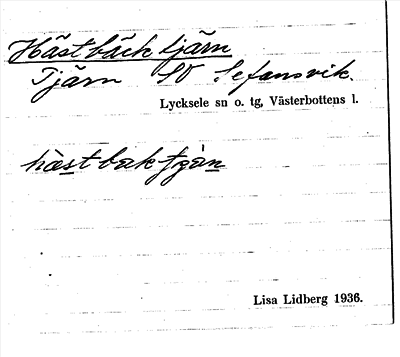 Hästbäcktjärn
Tjärn SV Sefansvik.
Lycksele sn o. tg, Västerbottens l.
hästbaktjàn
Lisa Lidberg 1936.